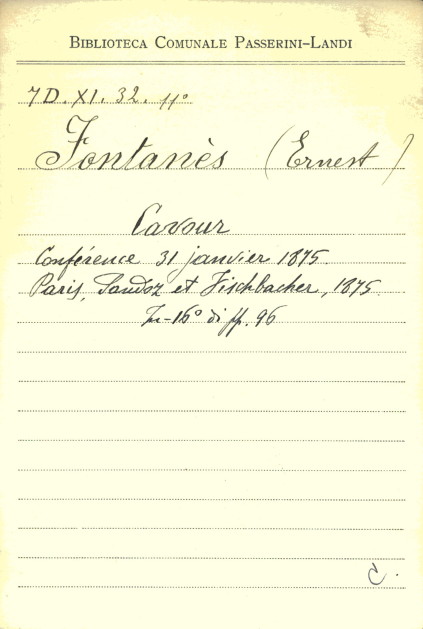 BIBLIOTECA COMUNALE PASSERINI-LANDI
7D. XI. 32. 11º
Fontanès (Ernest)
Cavour
Conférence 31 janvier 1875.
Paris, Sandoz et Fischbacher, 1875.
In-16º di pp. 96
C.